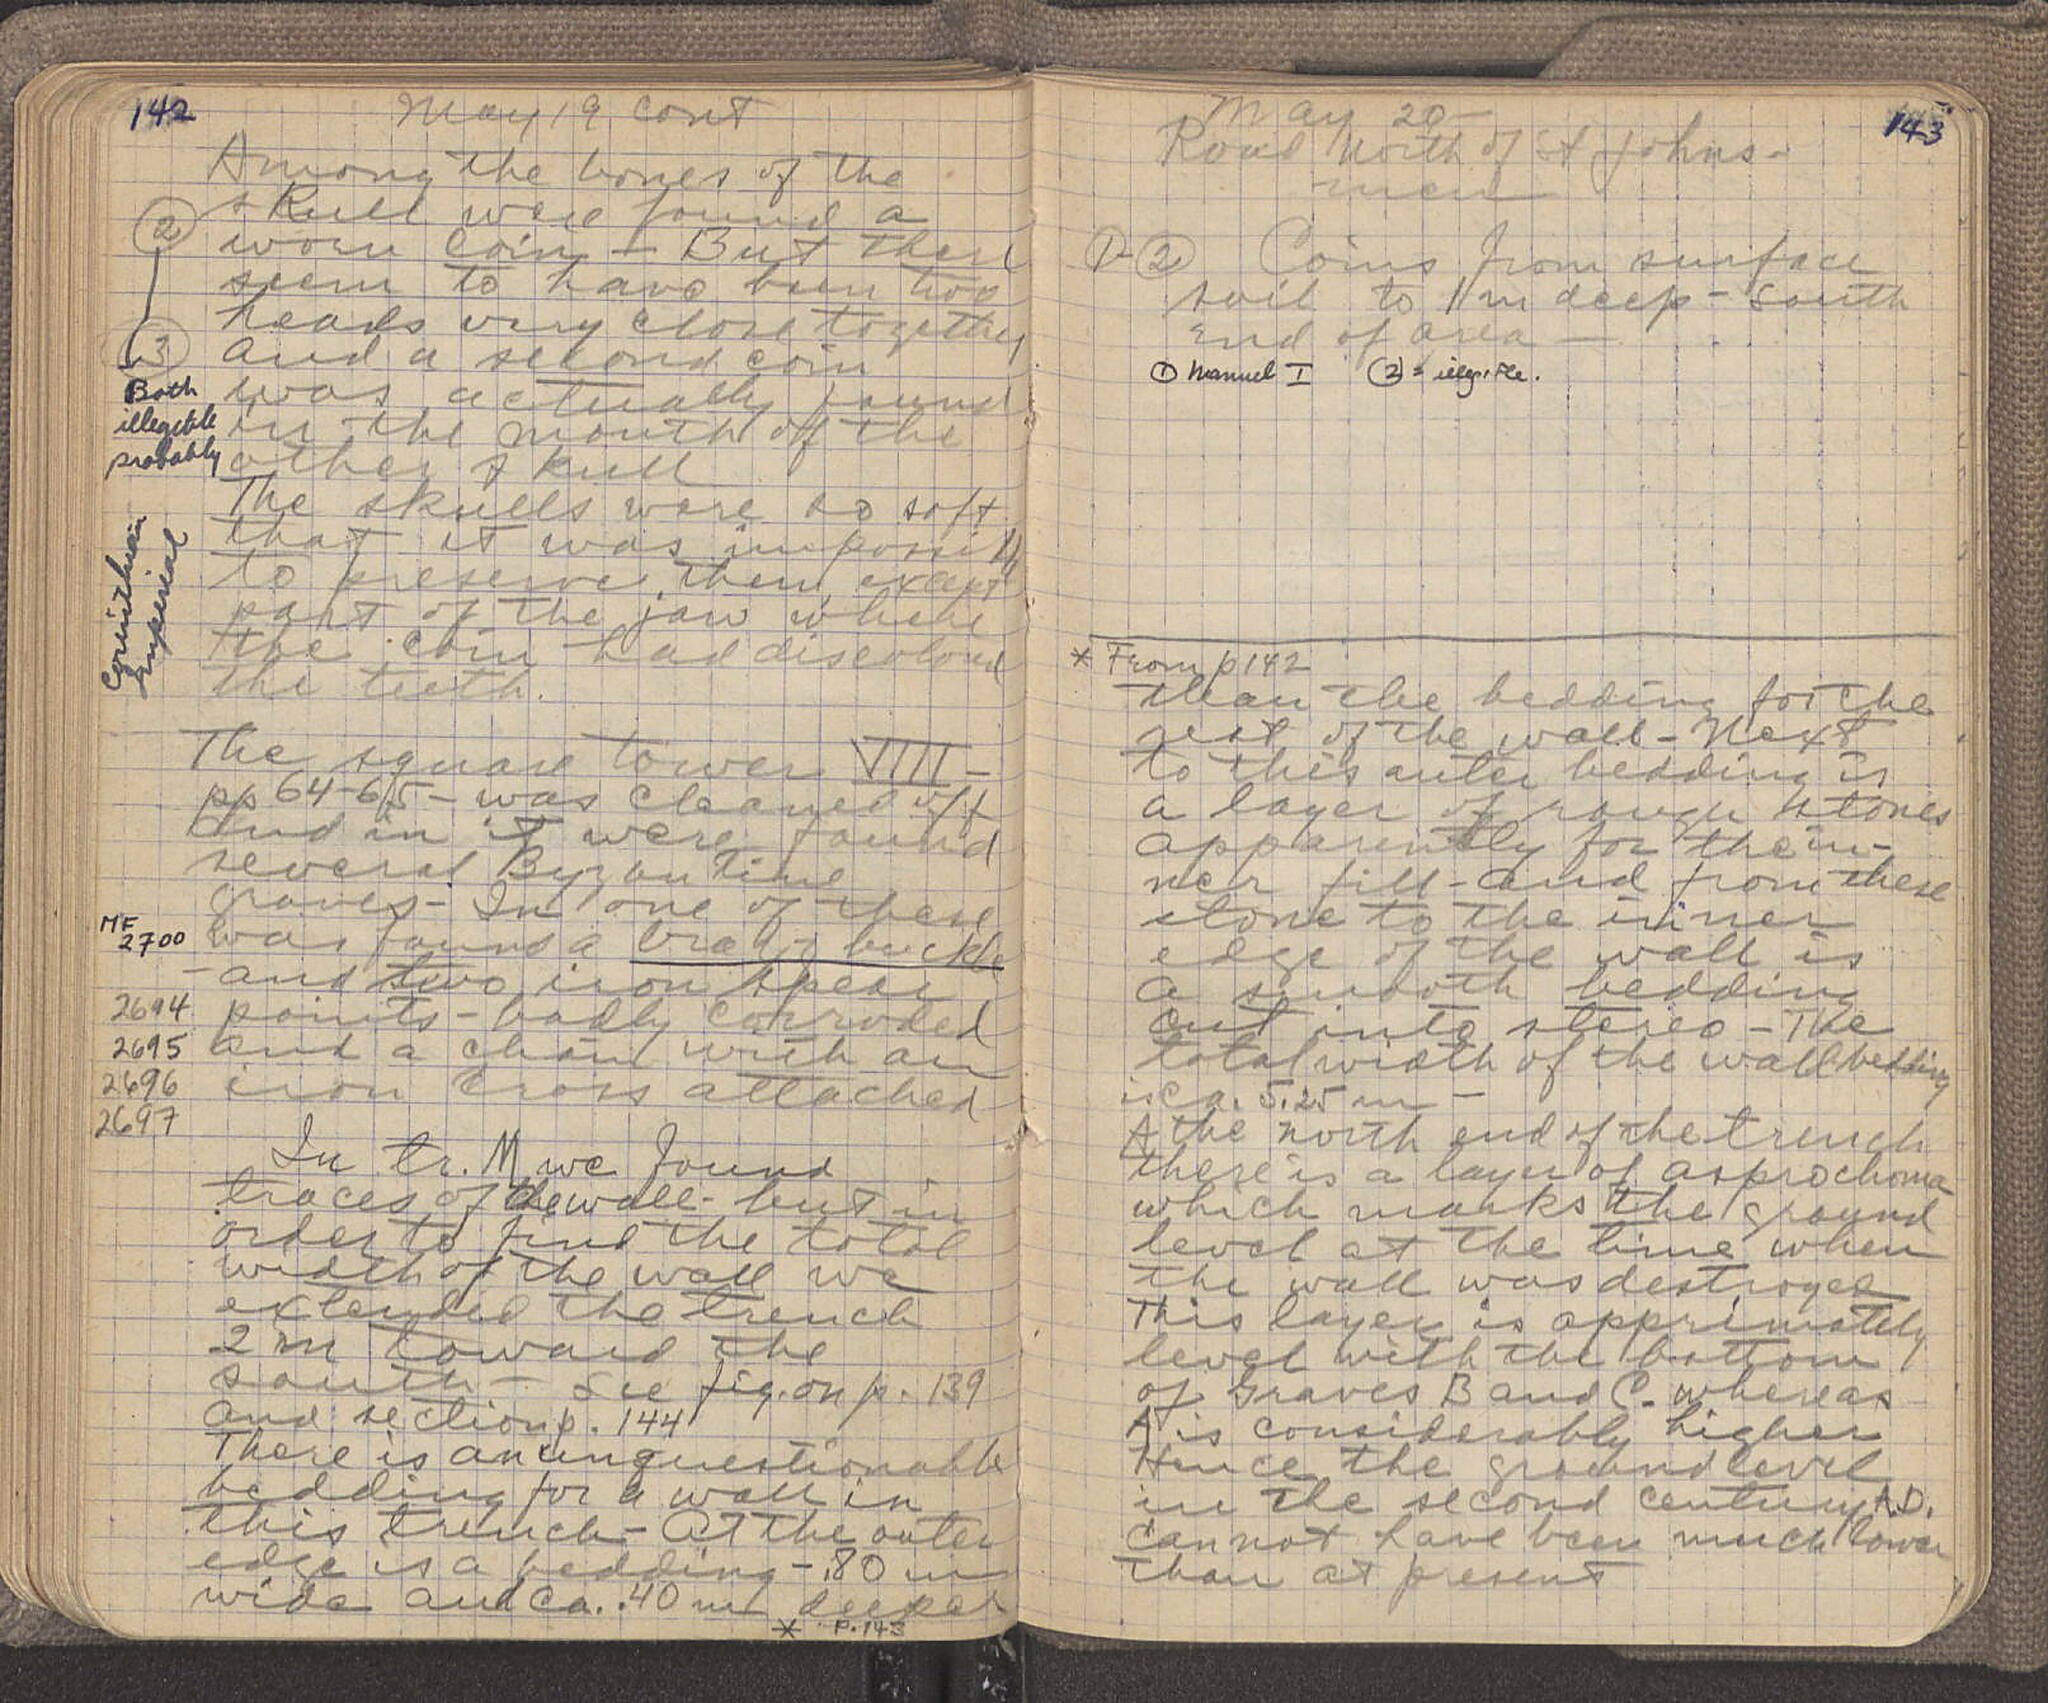 142
May 19 cont
Among the bones of the
skull were found a
② worn coin - But there
seem to have been two
heads very close together
③ and a second coin
was actually found
in the mouth of the
other skull
Both
illegible
probably
Corinthian
Imperial
The skulls were so soft
that it was impossible
to preserve them except
part of the jaw where
the coin had discolored
the teeth.
The square tower VIIII -
pp 64-65 - was cleaned off
and in it were found
several Byzantine
graves - In one of these
MF
2700
was found a bronze buckle
- and two iron spear
2694 points - badly corroded
2695 and a chain with an
2696 iron cross attached
2697
In tr. M we found
traces of the wall - but in
order to find the total
width of the wall we
extended the trench
2 m toward the
south - See fig. on p. 139
and section p. 144
There is an unquestionable
bedding for a wall in
this trench - At the outer
edge is a bedding - .80 m
wide and ca. .40 m deeper
* p. 143
143
May 20 -
Road North of St Johns -
men
①-② Coins from surface
soil to 1 m deep - South
end of area -
① Manuel I ② = illegible.
* From p 142
than the bedding for the
rest of the wall - Next
to this outer bedding is
a layer of rough stones
apparently for the in-
ner fill - and from these
stone to the inner
edge of the wall is
a smooth bedding
cut into stereo - The
total width of the wall bedding
is ca. 5.25 m -
At the north end of the trench
there is a layer of asprochoma
which marks the ground
level at the time when
the wall was destroyed
This layer is apprimately
level with the bottom
of Graves B and C. whereas
A is considerably higher
Hence the ground level
in the second century A.D.
cannot have been much lower
than at present